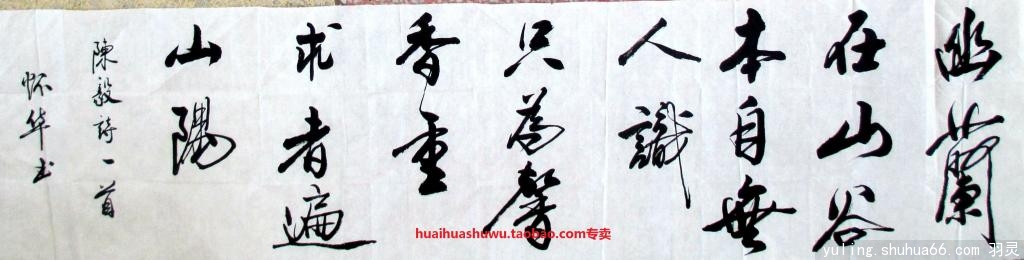 幽蘭
在山谷
本自無
人識
只為馨
香重
求者遍
山陽
陳毅詩一首
怀华书
huaihuashuwu.taobao.com专卖
yuling.shuhua66.com 羽灵